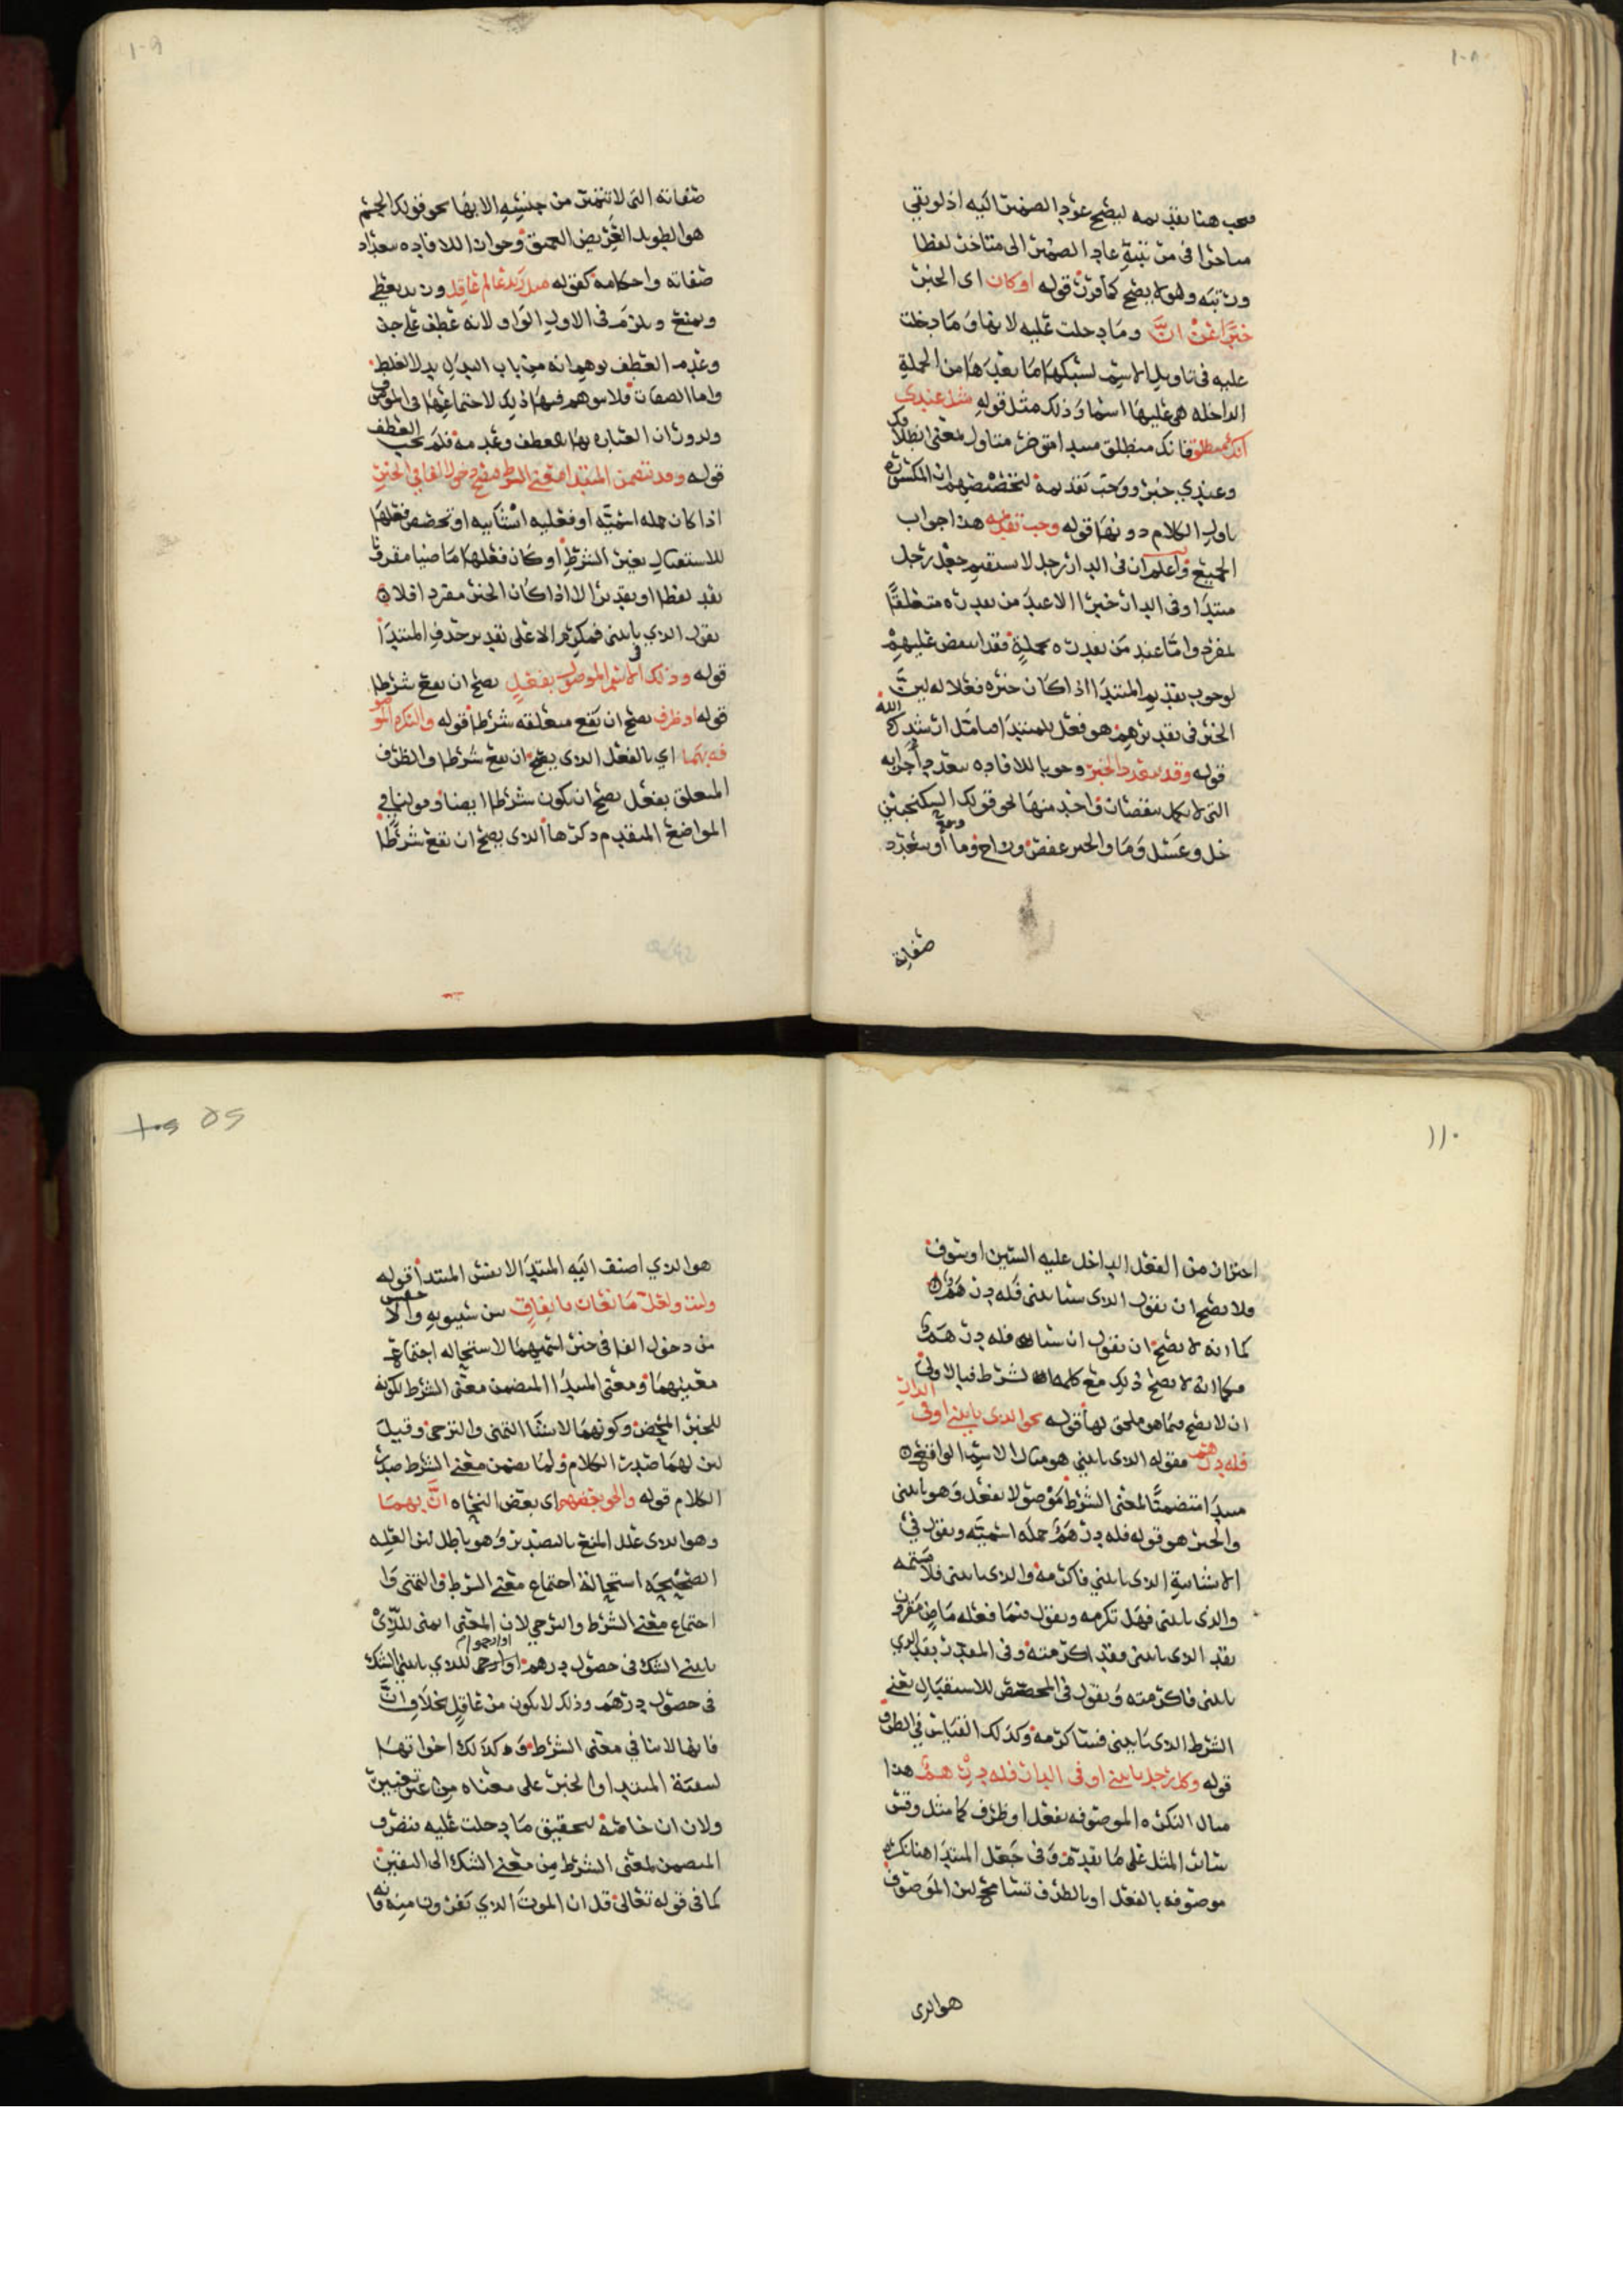 ١٠٨
فيجب هنا تقديمه ليصح عود الضمير اليه اذ لو بقي
متاخرا في مرتبته عاد الضمير الى متاخر لفظا
ورتبه وهو لا يصح كما قررت قوله او كان اى الخبر
خبرا عن انّ وما دخلت عليه لانها وما دخلت
عليه في تاويل الاسم لسبكها ما بعدها من الجملة
الداخله هي عليها اسما وذلك مثل قوله مثل عندي
انك منطلق فانك منطلق مبتدا موخر متناول لمعنى انطلاقك
وعندي خبر ووجب تقديمه لتخصيصهم ان المكسورة
باول الكلام دونها قوله وجب تقديمه هذا جواب
الجميع واعلم ان في الدار رجل لا يستقيم جعل رجل
مبتدا وفي الدار خبرا الا عند من يقدره متعلقا
بمفرد واما عند من يقدره بجملة فقد انتقض عليهم
لوجوب تقديم المبتدا اذا كان خبره فعلا له لان
الخبر في تقديرهم هو فعل للمبتدا تامل ارشدك الله
قوله وقد يتعدد الخبر وجوبا للافاده بتعدد اجزايه
التي لا يكمل بنقصان واحد منها نحو قولك السكنجبين
خل وعسل وما والحبر عفص وزاج وما او بتعدد
صفاته
١٠٩
صفاته التي لا تتميز من جنسه الا بها نحو قولك الجسم
هو الطويل العريض العميق وجوازا للافاده بتعداد
صفاته واحكامه كقوله مثل زيد عالم عاقل وزيد يعطي
ويمنع ويلزم في الاول الواو لانه عطف على جز
وعدم العطف يوهم انه من باب البدل بدل الغلط
واما الصفات فلا يتوهم فيها ذلك لاجتماعها في الموصوف
وله وزان العبارة بها بالعطف وعدمه فلم يجب العطف
قوله وقد يتضمن المبتدا معنى الشرط فيصح دخول الفا في الخبر
اذا كان جمله اسميّه او فعليه انشاييه او تمخض فعلها
للاستقبال بغير الشرط او كان فعلها ماضيا مقرونا
بقد لفظا او تقديرا لا اذا كان الخبر مفردا فلا
تقول الذي ياتيني فمكرم الا على تقدير حذف المبتدا
قوله وذلك الاسم الموصول بفعل يصح ان يقع شرطا
قوله او ظرف يصح ان يقع متعلقه شرطا قوله والنكره الموصو
فه بهما اي بالفعل الذي يصح ان يقع شرطا والظرف
المتعلق بفعل يصح ان يكون شرطا ايضا وقولنا في
المواضع المتقدم ذكرها الذي يصح ان يقع شرطا
١١٠
احتراز من الفعل الداخل عليه السين او سوف
فلا يصح ان تقول الذي سياتيني فله درهم
كما انه لا يصح ان تقول ان سيات فله درهم
فكما انه لا يصح ذلك مع كلمه الشرط فبالاولى
ان لا يصح فيما هو ملحق لها قوله نحو الذي ياتيني او في الدار
فله درهم فقوله الذي ياتيني هو مثال الاسم الواقع
مبتدا متضمنا لمعنى الشرط موصولا بفعل وهو ياتيني
والخبر هو قوله فله درهم جمله اسميّه وتقول في
الانشائية الذي ياتيني فاكرمه والذي ياتيني فلا تشتمه
والذي ياتيني فهل تكرمه وتقول فيما فعله ماض مقرون
بقد الذي ياتيني فقد اكرمته وفي المقدر بقد الذي
ياتيني فاكرمته وتقول في المخصص للاستقبال بغير
الشرط الذي ياتيني فساكرمه وكذلك القياس في الظرف
قوله وكل رجل ياتيني او في الدار فله درهم هذا
مثال النكره الموصوفه بفعل او ظرف كما مثل وقس
سائر المثل على ما تقدم وفي جعل المبتدا هنا نكره
موصوفه بالفعل او بالظرف تسامح لان الموصوف
هو الذي
هو الذي اضيف اليه المبتدا لا نفس المبتدا قوله
وليت ولعل مانعان باتفاق من سيبويه والاخفش
من دخول الفا في خبر اسميهما لاستحاله اجتماع
معنييهما ومعنى المبتدا المتضمن معنى الشرط لكونه
للخبر المحض وكونهما لانشا التمني والترجي وقيل
لان لهما صدر الكلام ولما تضمن معنى الشرط صدر
الكلام قوله والحق بعضهم اي بعض النحاه انّ بهما
وهو الذي علل المنع بالتصدير وهو باطل لان العله
الصحيحه استحالة اجتماع معنى الشرط والتمني وا
اجتماع معنى الشرط والترجي لان المعنى اتمنى للذي
ياتيني الشك في حصول درهم او ارجو للذي ياتيني الشك
في حصول درهم وذلك لا يكون من عاقل بخلاف انّ
فانها لا تنافي معنى الشرط وكذلك اخواتها
لبقية المبتدا والخبر على معناه من غير تغيير
ولان ان خاصة لتحقيق ما دخلت عليه فتصرف
المتضمن لمعنى الشرط من معنى الشك الى اليقين
كما في قوله تعالى قل ان الموت الذي تفرون منه فانه